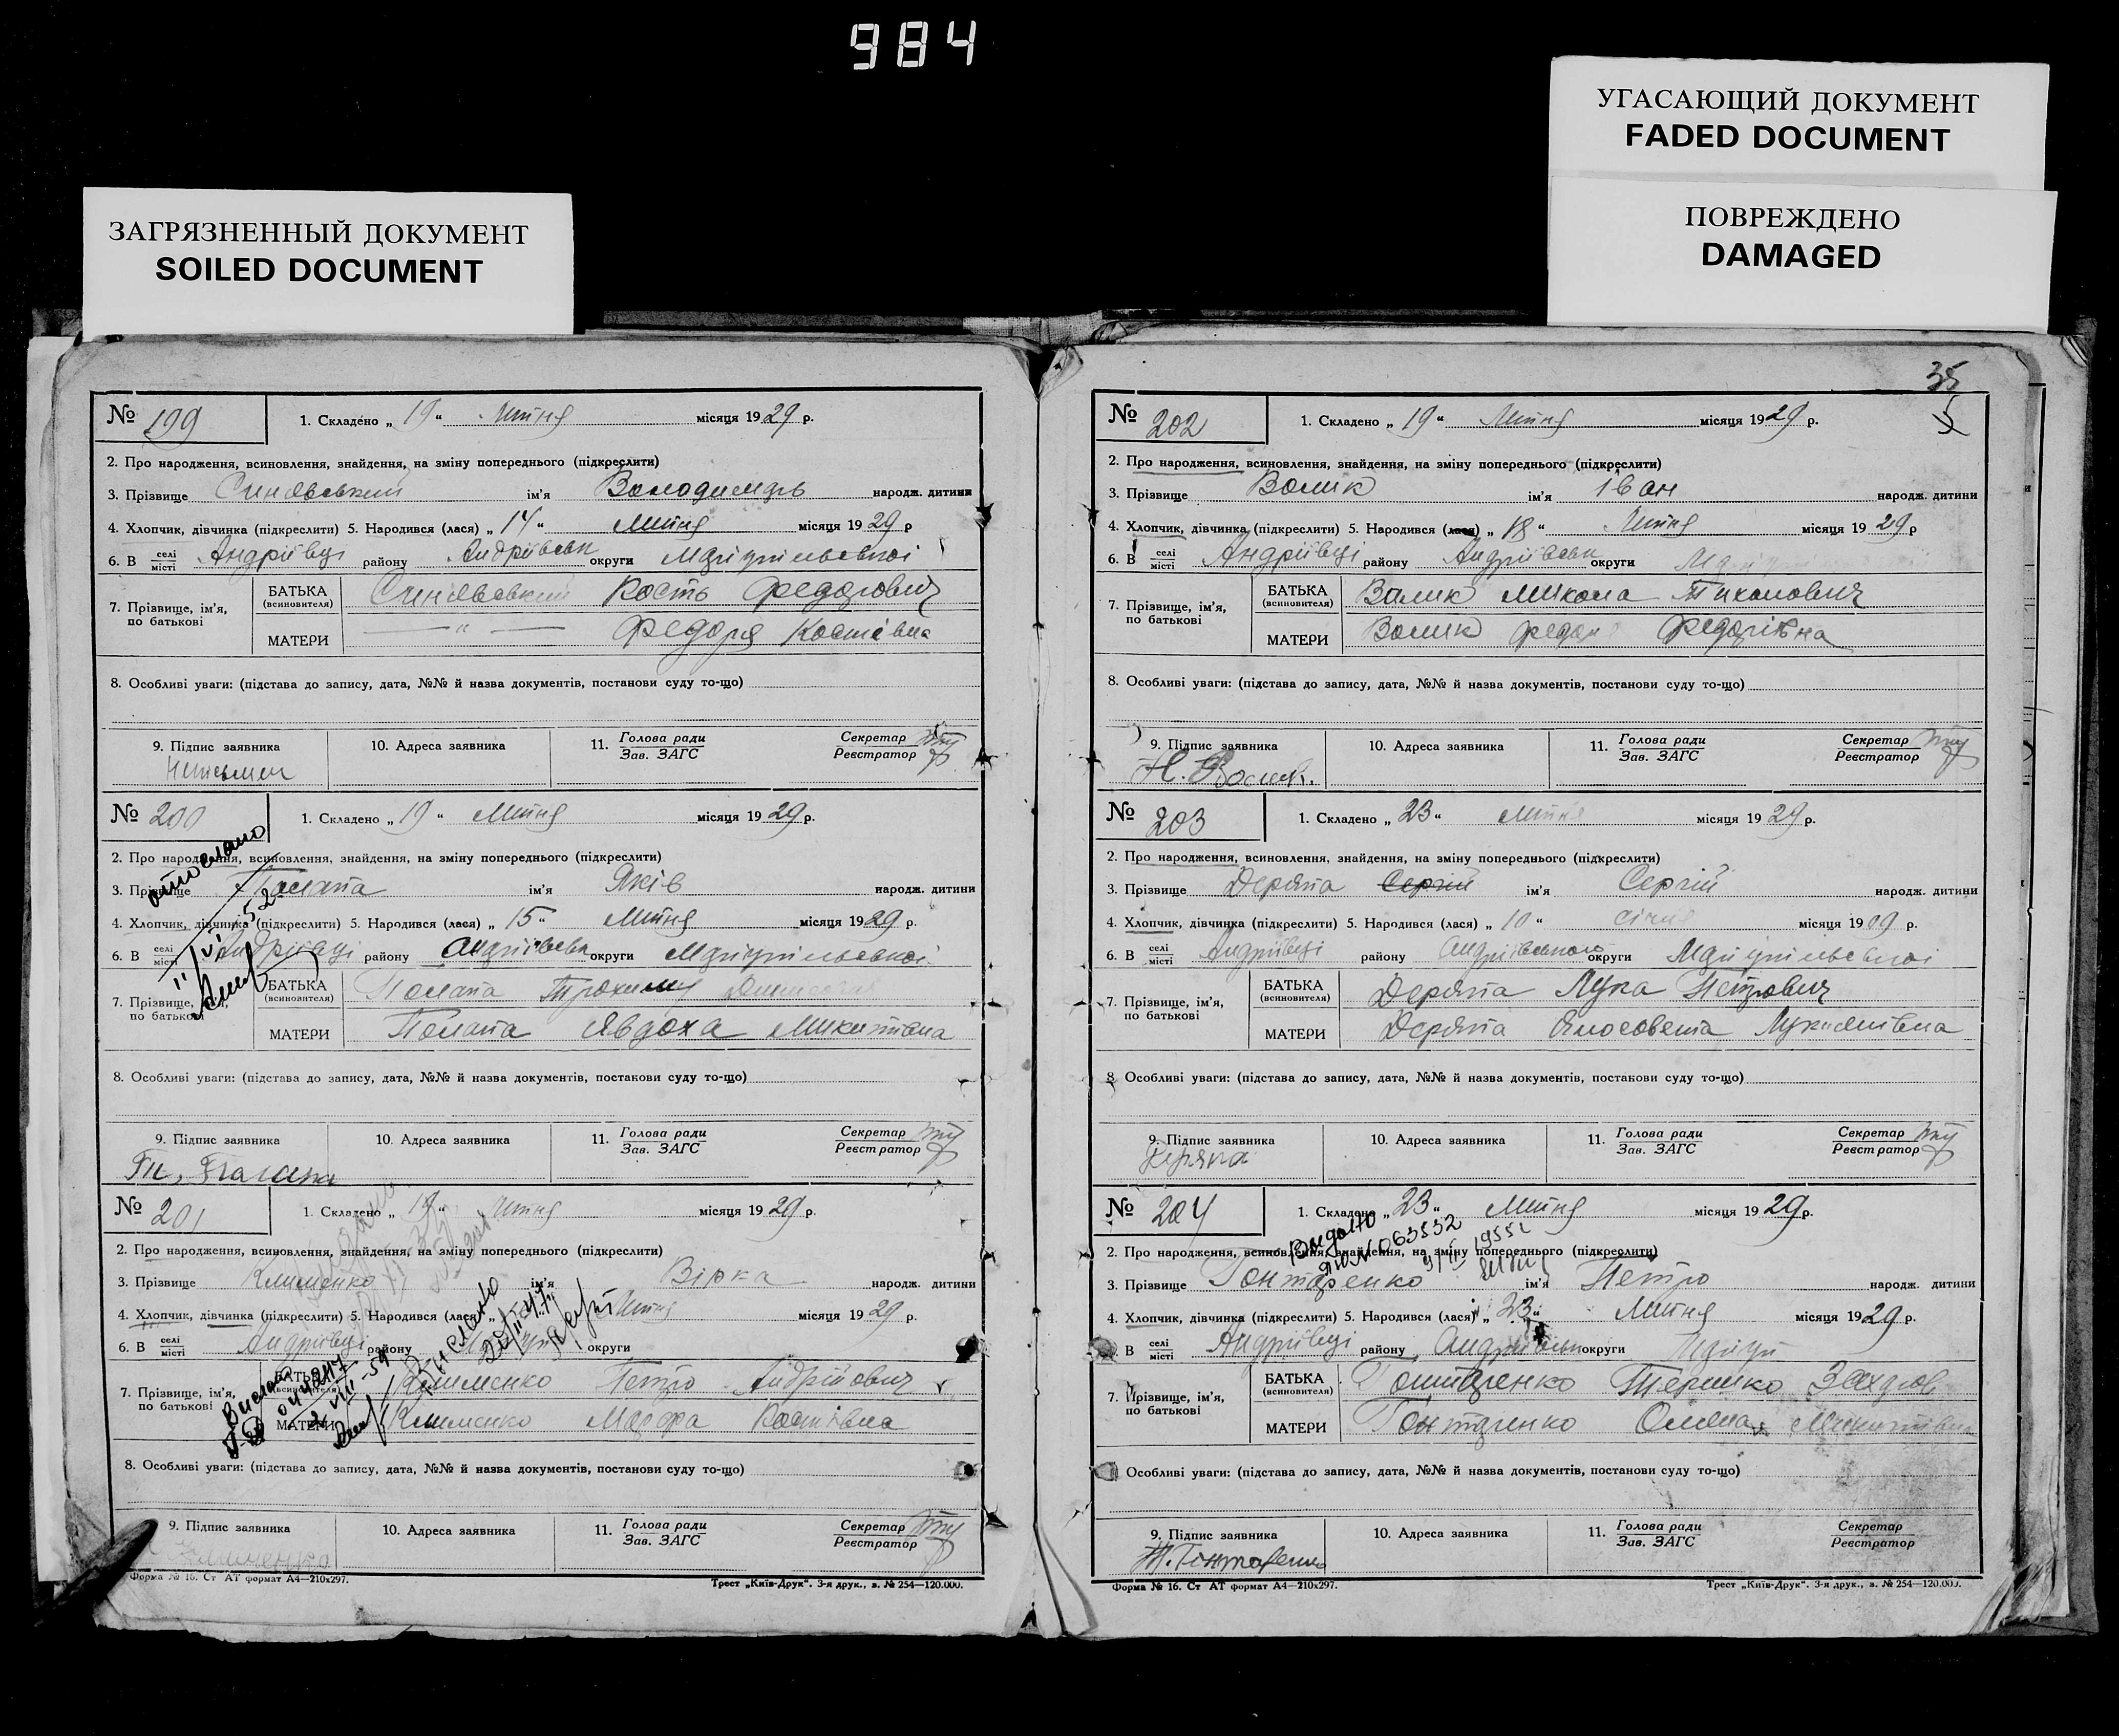 984
УГАСАЮЩИЙ ДОКУМЕНТ
FADED DOCUMENT
ПОВРЕЖДЕНО
DAMAGED
ЗАГРЯЗНЕННЫЙ ДОКУМЕНТ
SOILED DOCUMENT
№ 199
1. Складено „ 19 “ липня місяця 1929 р.
2. Про народження, всиновлення, знайдення, на зміну попереднього (підкреслити)
3. Прізвище Синявський ім'я Володимирь народж. дитини
4. Хлопчик, дівчинка (підкреслити) 5. Народився (лася) „ 14 “ липня місяця 1929 р
6. В селі місті Андріївці району Андріївськ округи Маріупільської
7. Прізвище, ім'я, по батькові
БАТЬКА (всиновителя) Синявський Кость Федорович
МАТЕРИ — " — Федора Костівна
8. Особливі уваги: (підстава до запису, дата, №№ й назва документів, постанови суду то-що)
9. Підпис заявника
10. Адреса заявника
11. Голова ради Зав. ЗАГС
Секретар Реєстратор
Неписьмен
№ 200
1. Складено „ 19 “ липня місяця 1929 р.
2. Про народження, всиновлення, знайдення, на зміну попереднього (підкреслити)
3. Прізвище Палапа ім'я Яків народж. дитини
4. Хлопчик, дівчинка (підкреслити) 5. Народився (лася) „ 15 “ липня місяця 1929 р.
6. В селі місті Андріївці району Андріївськ округи Маріупільської
7. Прізвище, ім'я, по батькові
БАТЬКА (всиновителя) Палапа Трохим
МАТЕРИ Палапа Явдоха Микитівна
8. Особливі уваги: (підстава до запису, дата, №№ й назва документів, постакови суду то-що)
9. Підпис заявника
10. Адреса заявника
11. Голова ради Зав. ЗАГС
Секретар Реєстратор
№ 201
1. Складено „ 19 “ липня місяця 1929 р.
2. Про народження, всиновлення, знайдення, на зміну попереднього (підкреслити)
3. Прізвище Клименко ім'я Вірка народж. дитини
4. Хлопчик, дівчинка (підкреслити) 5. Народився (лася) „ липня місяця 1929 р.
6. В селі місті Андріївці району округи
7. Прізвище, ім'я, по батькові
БАТЬКА (всиновителя) Клименко Петро Андрійович
МАТЕРИ Клименко Марфа Костівна
Вислано
8. Особливі уваги: (підстава до запису, дата, №№ й назва документів, постанови суду то-що)
9. Підпис заявника
10. Адреса заявника
11. Голова ради Зав. ЗАГС
Секретар Реєстратор
Клименко
Форма № 16. Ст АТ формат А4—210х297.
Трест „Київ-Друк“. 3-я друк., в. № 254—120.000.
35
№ 202
1. Складено „ 19 “ липня місяця 1929 р.
2. Про народження, всиновлення, знайдення, на зміну попереднього (підкреслити)
3. Прізвище Волик ім'я Іван народж. дитини
4. Хлопчик, дівчинка (підкреслити) 5. Народився (лася) „ 18 “ липня місяця 1929 р
6. В селі місті Андріївці району Андріївськ округи
7. Прізвище, ім'я, по батькові
БАТЬКА (всиновителя) Волик Микола Тихонович
МАТЕРИ Волик Федора Федорівна
8. Особливі уваги: (підстава до запису, дата, №№ й назва документів, постанови суду то-що)
9. Підпис заявника
10. Адреса заявника
11. Голова ради Зав. ЗАГС
Секретар Реєстратор
Н. Волик.
№ 203
1. Складено „ 23 “ липня місяця 1929 р.
2. Про народження, всиновлення, знайдення, на зміну попереднього (підкреслити)
3. Прізвище Деряпа Сергій ім'я Сергій народж. дитини
4. Хлопчик, дівчинка (підкреслити) 5. Народився (лася) „ 10 “ січня місяця 1909 р.
6. В селі місті Андріївці району Андріївського округи Маріупільської
7. Прізвище, ім'я, по батькові
БАТЬКА (всиновителя) Деряпа Лука Петрович
МАТЕРИ Деряпа Лукиянівна
8 Особливі уваги: (підстава до запису, дата, №№ й назва документів, постакови суду то-що)
9. Підпис заявника
10. Адреса заявника
11. Голова ради Зав. ЗАГС
Секретар Реєстратор
Деряпа
№ 204
1. Складено „ 23 “ липня місяця 1929 р.
2. Про народження, всиновлення, знайдення, на зміну попереднього (підкреслити)
3. Прізвище Гонтаренко ім'я Петро народж. дитини
4. Хлопчик, дівчинка (підкреслити) 5. Народився (лася) „ 23 “ липня місяця 1929 р.
6. В селі місті Андріївці району Андріївськ округи
7. Прізвище, ім'я, по батькові
БАТЬКА (всиновителя) Гонтаренко Терешко
МАТЕРИ Гонтаренко Оляна Микитівна
Особливі уваги: (підстава до запису, дата, №№ й назва документів, постанови суду то-що)
9. Підпис заявника
10. Адреса заявника
11. Голова ради Зав. ЗАГС
Секретар Реєстратор
Т. Гонтаренко
Форма № 16. Ст АТ формат А4—210х297.
Трест „Київ-Друк“. 3-я друк., в. № 254—120.000.